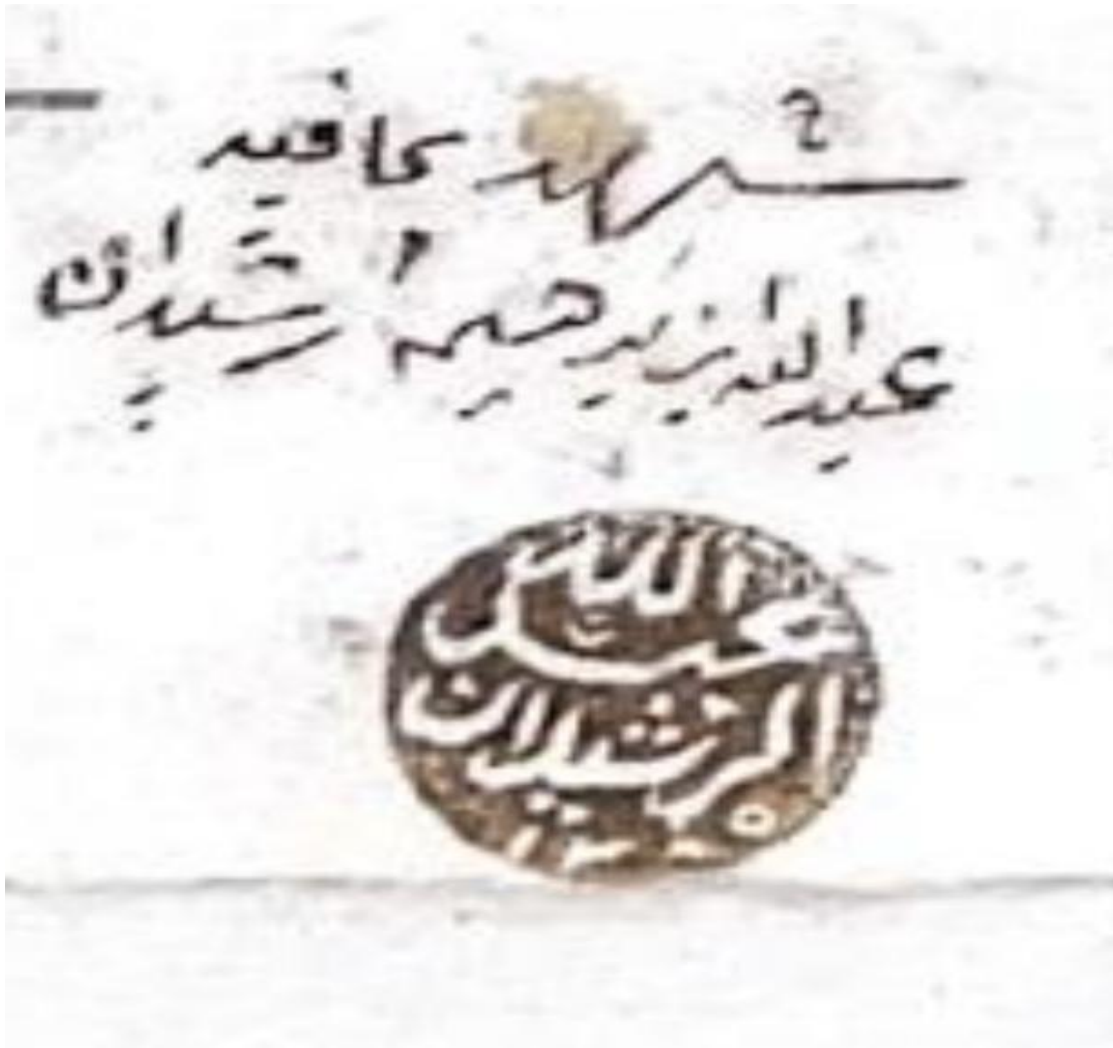 شهد بما فيه
عبد الله بن ابراهيم الرشيدان
عبد الله
الرشيدان